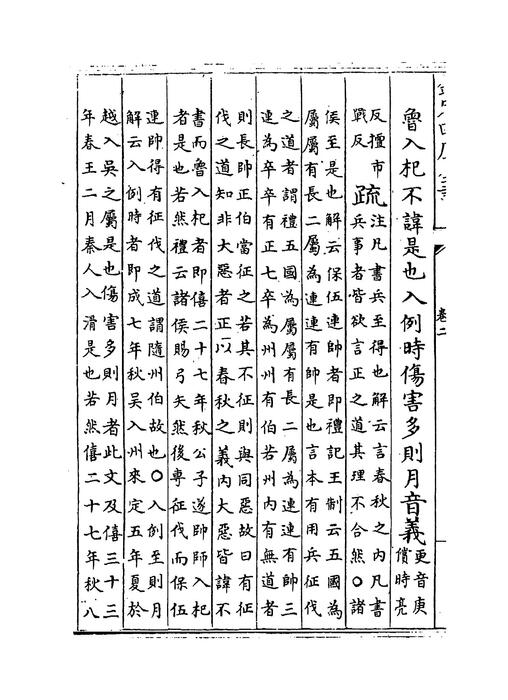 卷二
魯入杞不諱是也入例時傷害多則月音義更音庚
償時亮
反擅市
戰反
疏注凡書兵至得也解云言春秋之内凡書
兵事者皆欲言正之道其理不合然○諸
侯至是也解云保伍連帥者即禮記王制云五國為
屬屬有長二屬為連連有帥是也言本有用兵征伐
之道者謂禮五國為屬屬有長二屬為連連有帥三
連為卒卒有正七卒為州州有伯若州内有無道者
則長帥正伯當征之若其不征則與同惡故曰有征
伐之道知非大惡者正以春秋之義内大惡皆諱不
書而魯入杞者即僖二十七年秋公子遂帥師入杞
者是也若然禮云諸侯賜弓矢然後專征伐而保伍
連帥得有征伐之道謂隨州伯故也○入例至則月
解云入例時者即成七年秋吳入州來定五年夏於
越入吳之屬是也傷害多則月者此文及僖三十三
年春王二月秦人入滑是也若然僖二十七年秋八